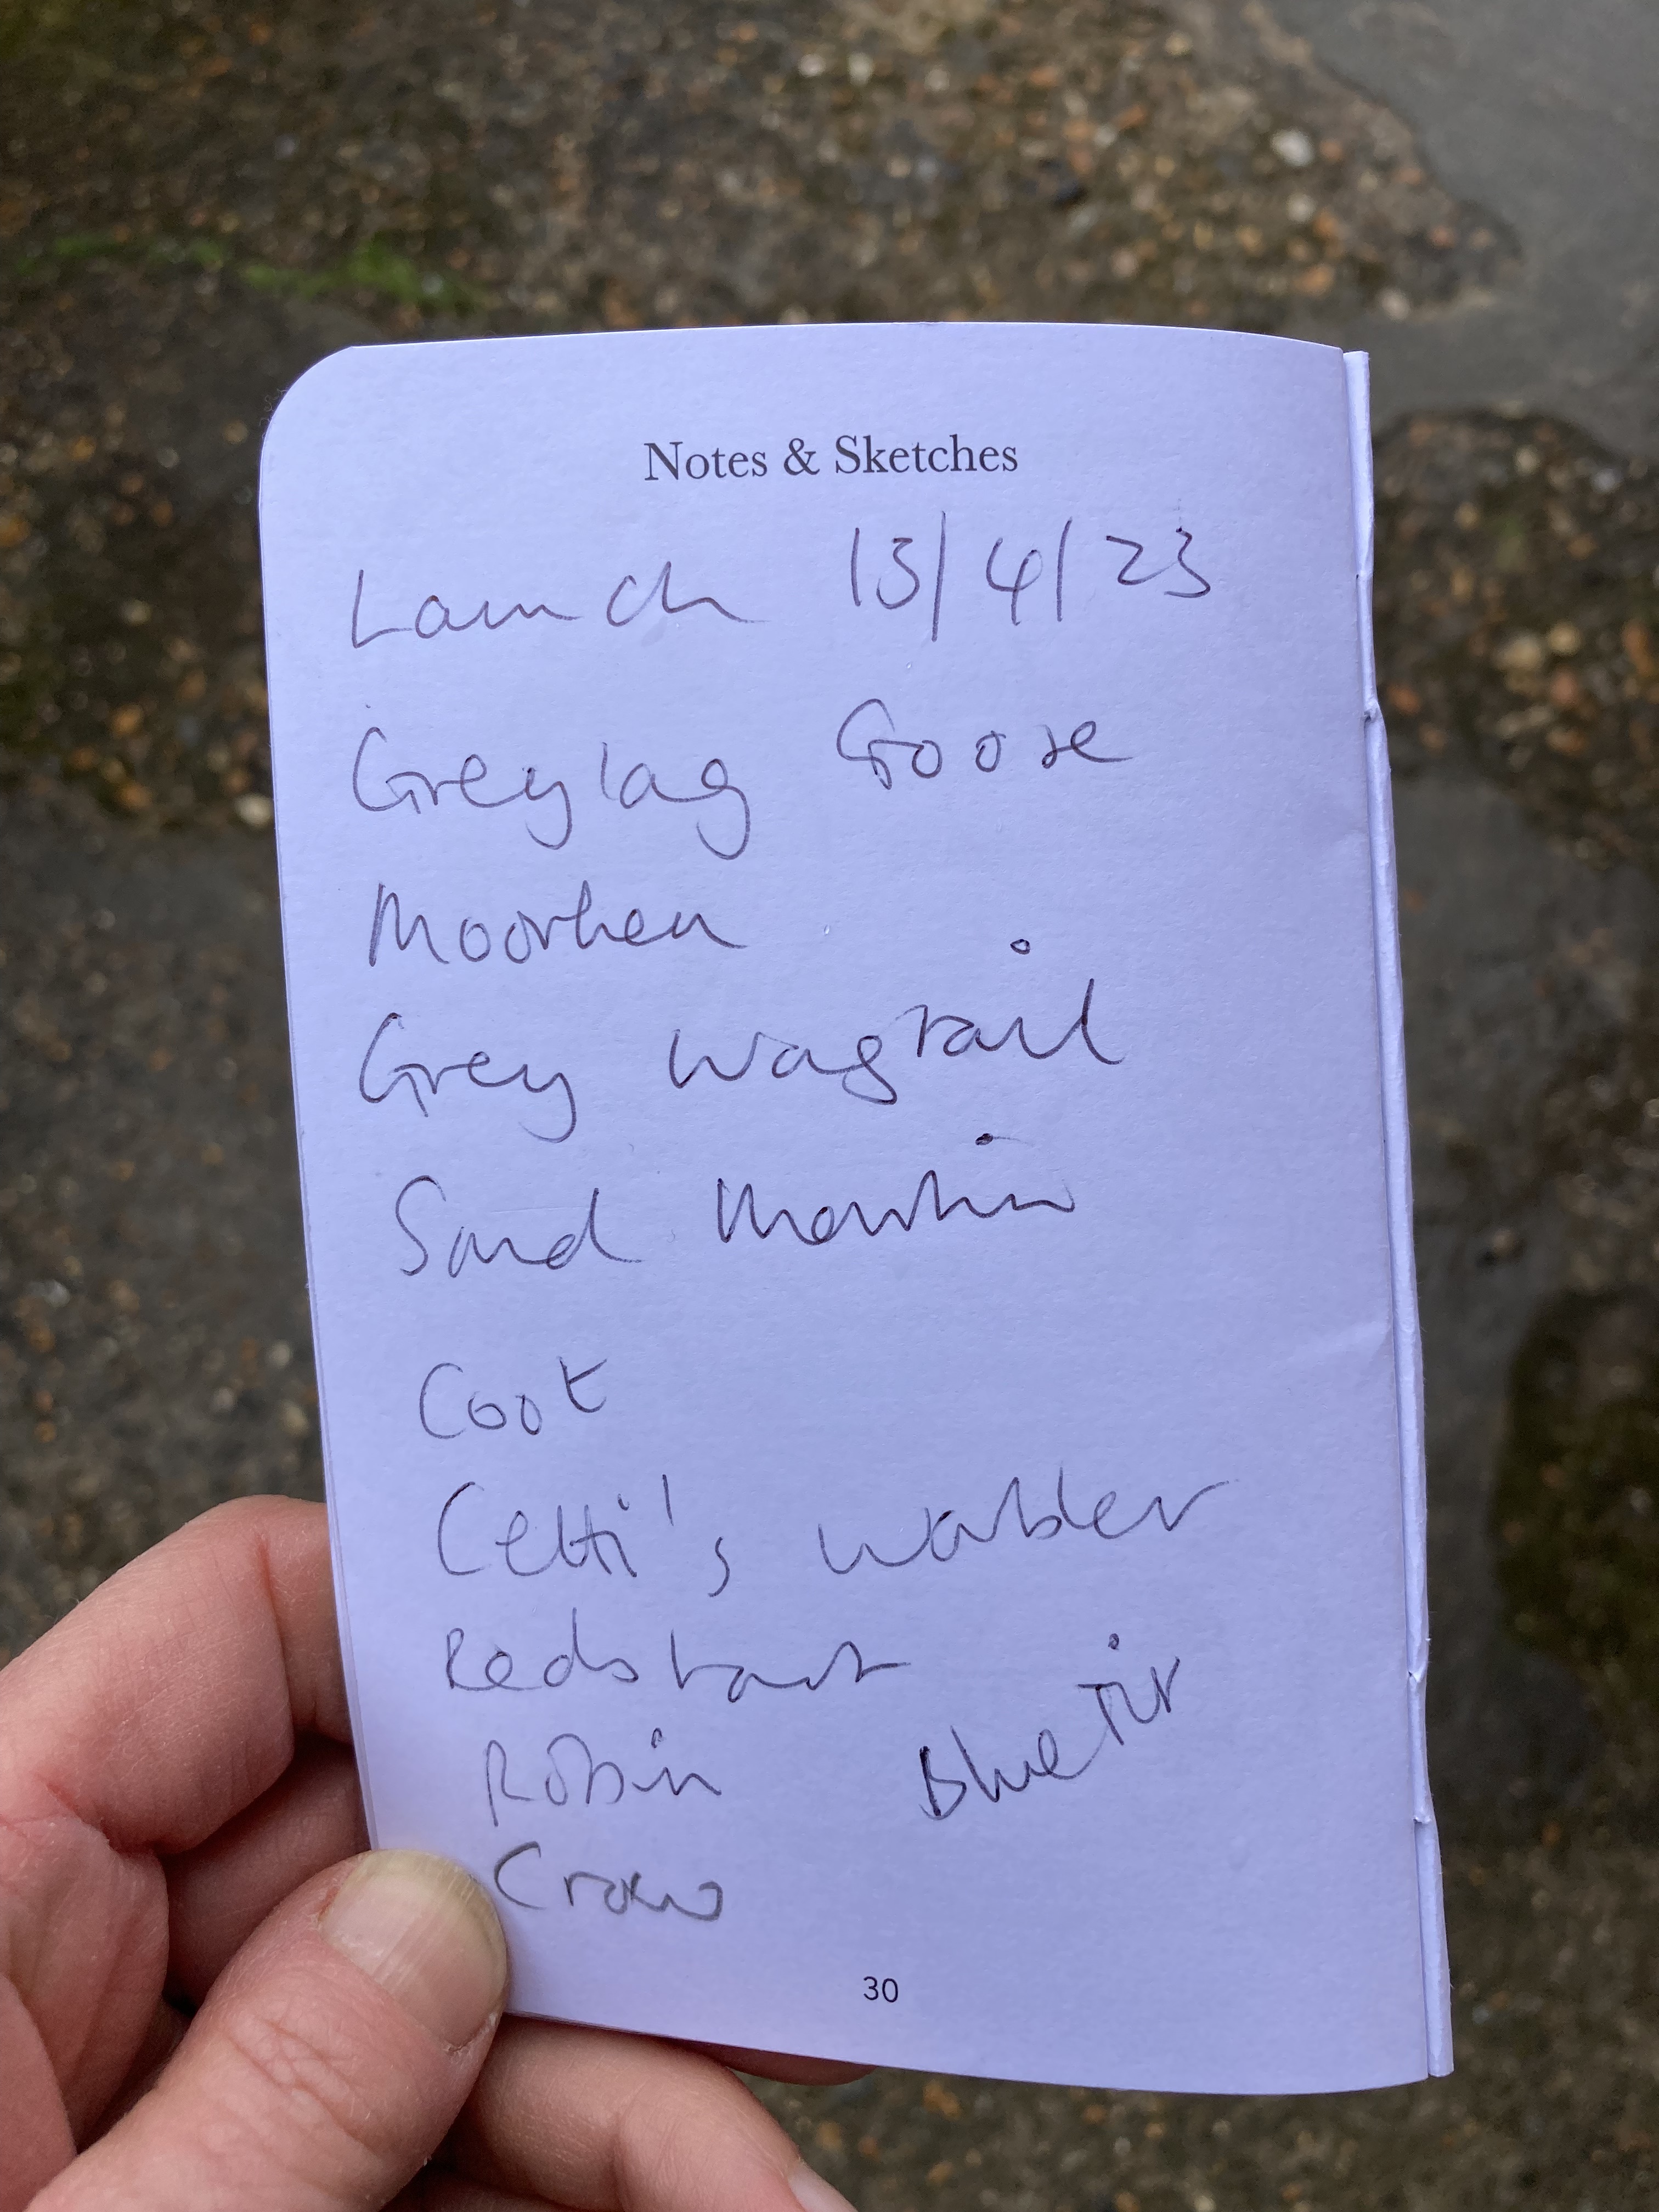 Notes & Sketches
Launch 13/4/23
Greylag Goose
Moorhen
Grey Wagtail
Sand Martin
Coot
Cetti's warbler
Redstart
Robin Blue Tit
Crow
30